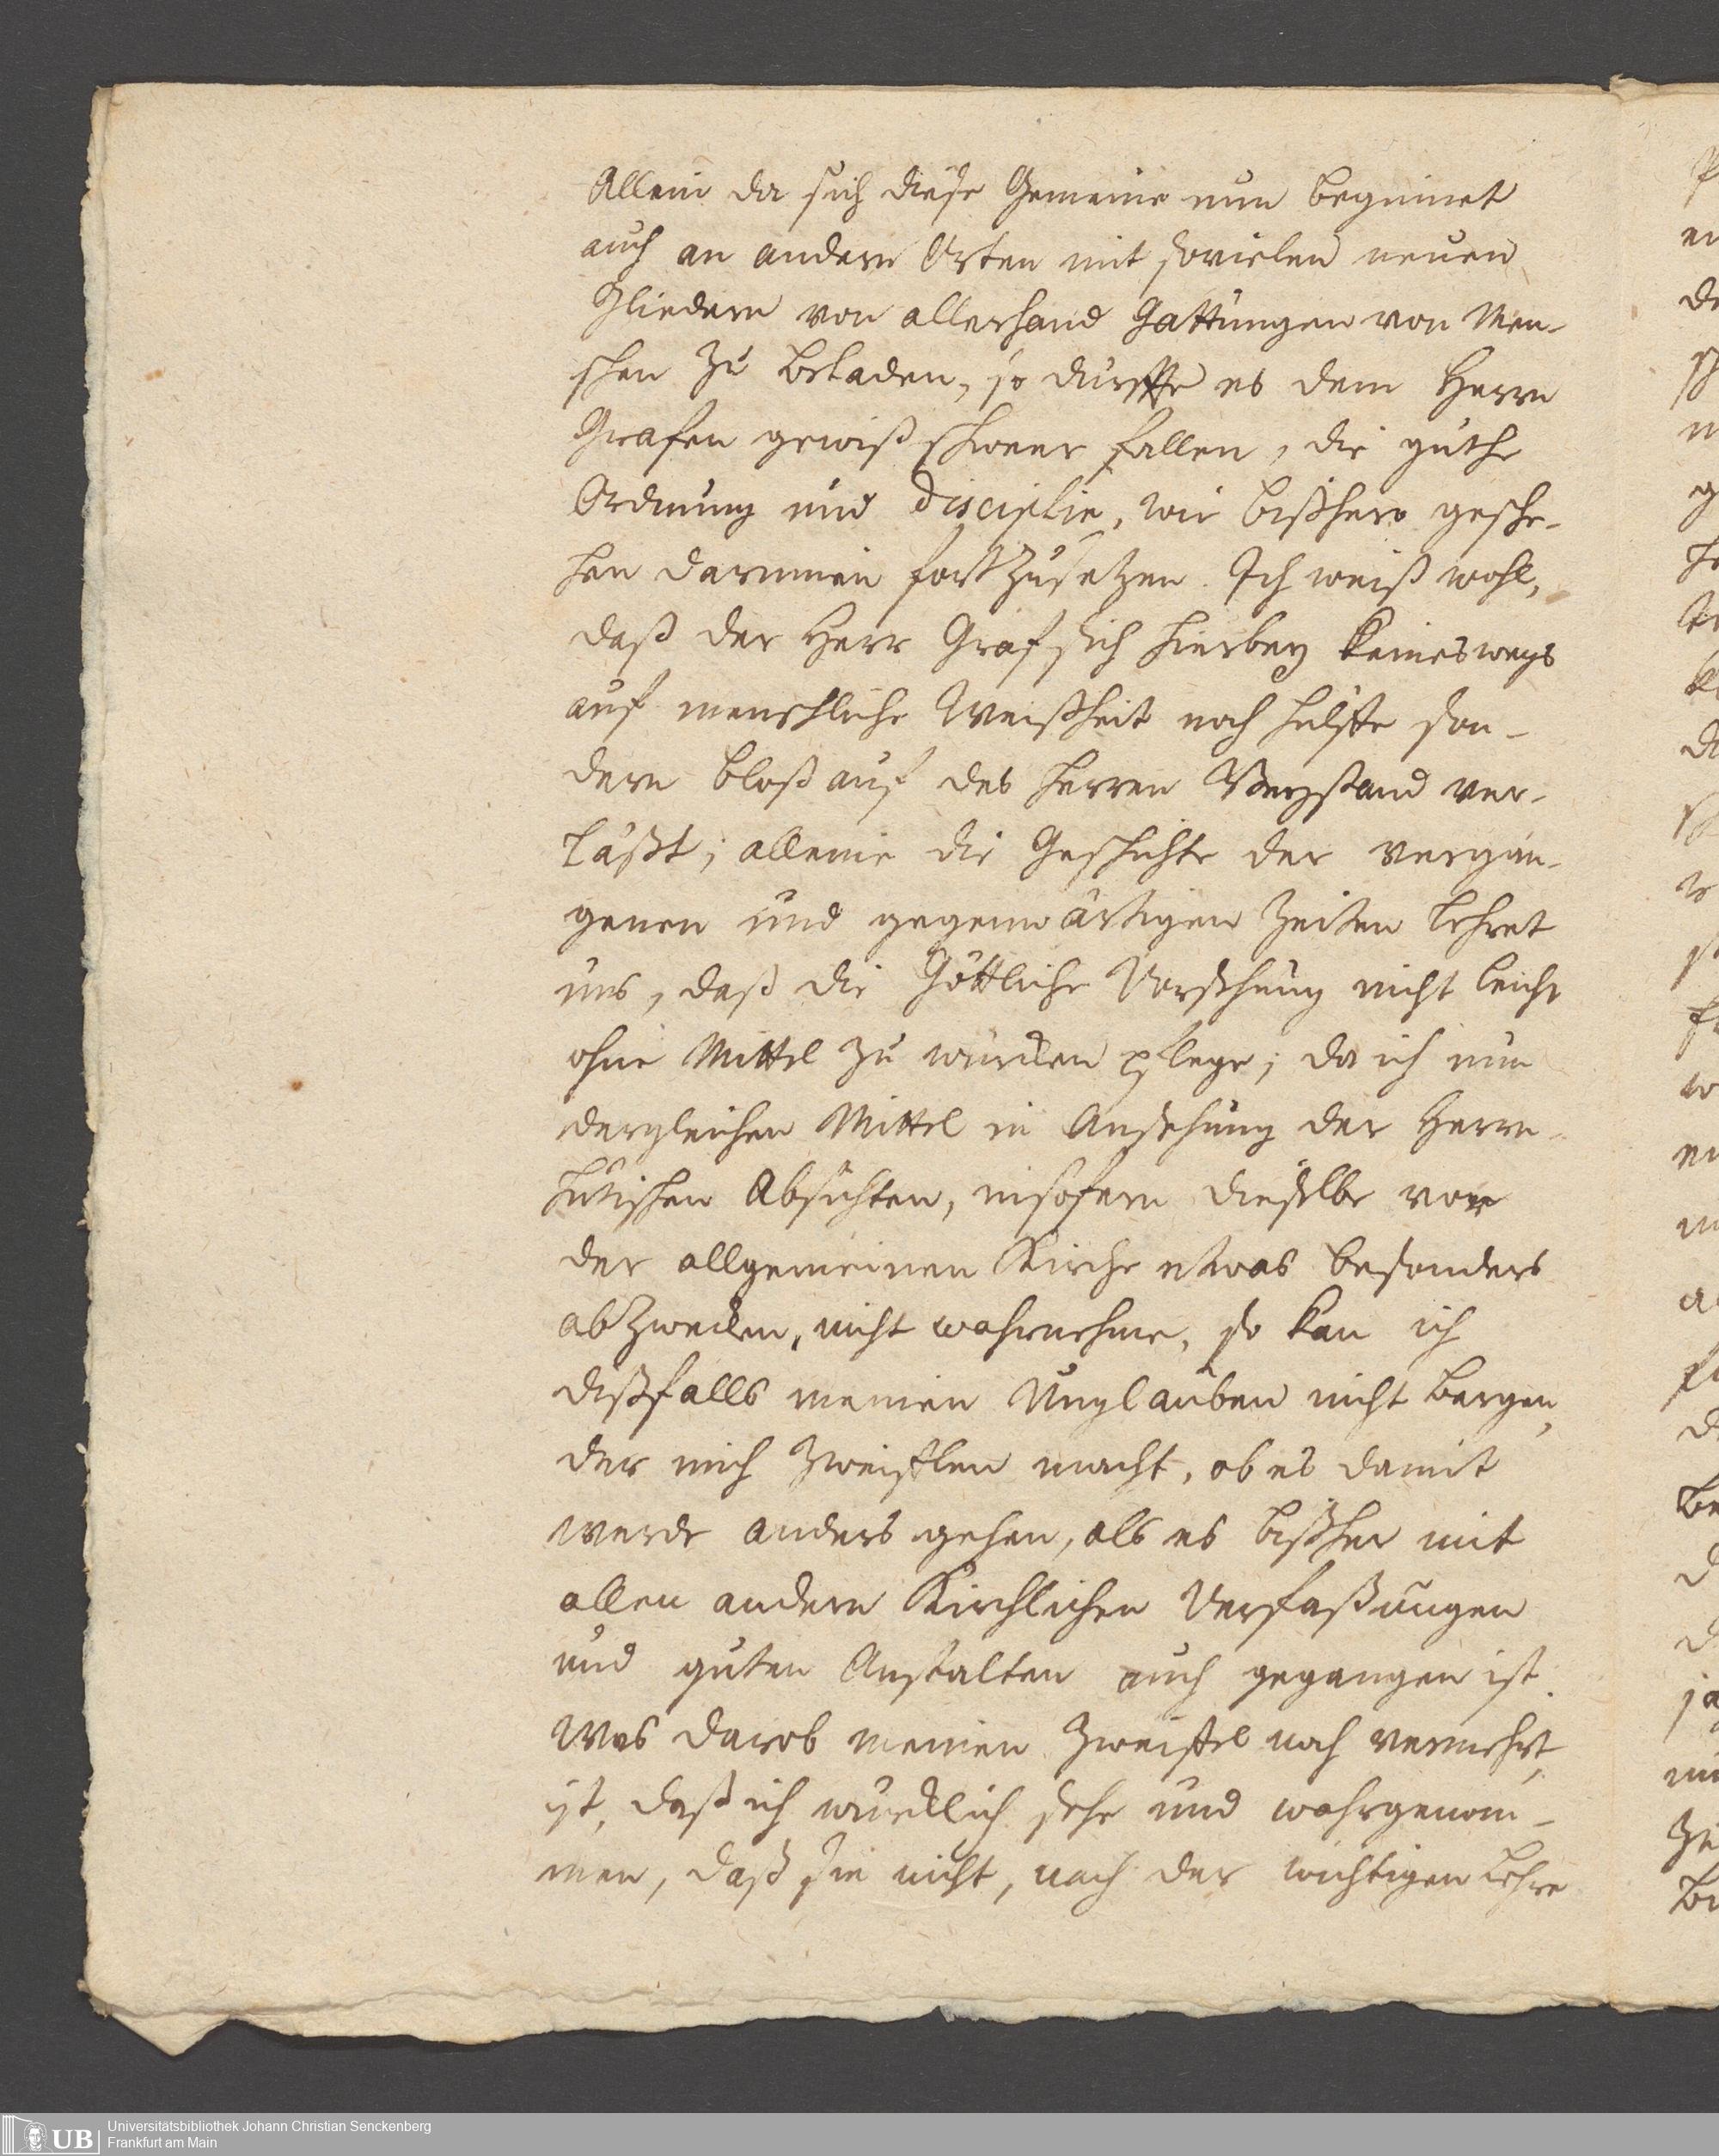 Allein da sich diese Gemeine nun beginnet
auch an andern Orten mit sovielen neuen
Gliedern von allerhand Gattungen von Men-
schen zu beladen, so durffte es dem Herrn
Grafen gewiß schwer fallen, die guthe
Ordnung und Disciplin, wie bißhero gesche-
hen darinnen fortzusetzen. Ich weiß wohl,
daß der Herr Graf sich hierbey keineswegs
auf menschliche Weißheit noch hülffe son-
dern bloß auf des Herren Beystand ver-
läßt; alleine die Geschichte der vergan-
genen und gegenwärtigen Zeiten lehret
uns, daß die Göttliche Vorsehung nicht leicht
ohne Mittel zu würcken pflege; da ich nun
dergleichen Mittel in Ansehung der Herrn-
hutischen Absichten, insofern dieselbe von
der allgemeinen Kirche etwas besonders
abzwecken, nicht wahrnehme, so kan ich
dißfalls meinen Unglauben nicht bergen,
der mich zweifflen macht, ob es damit
werde anders gehen, als es bißher mit
allen andern Kirchlichen Verfaßungen
und guten Anstalten auch gegangen ist.
Was darob meinen Zweiffel noch vermehrt,
ist, daß ich würcklich sehe und wahrgenom-
men, daß sie nicht, nach der wichtigen Lehre
Universitätsbibliothek Johann Christian Senckenberg
Frankfurt am Main
UB